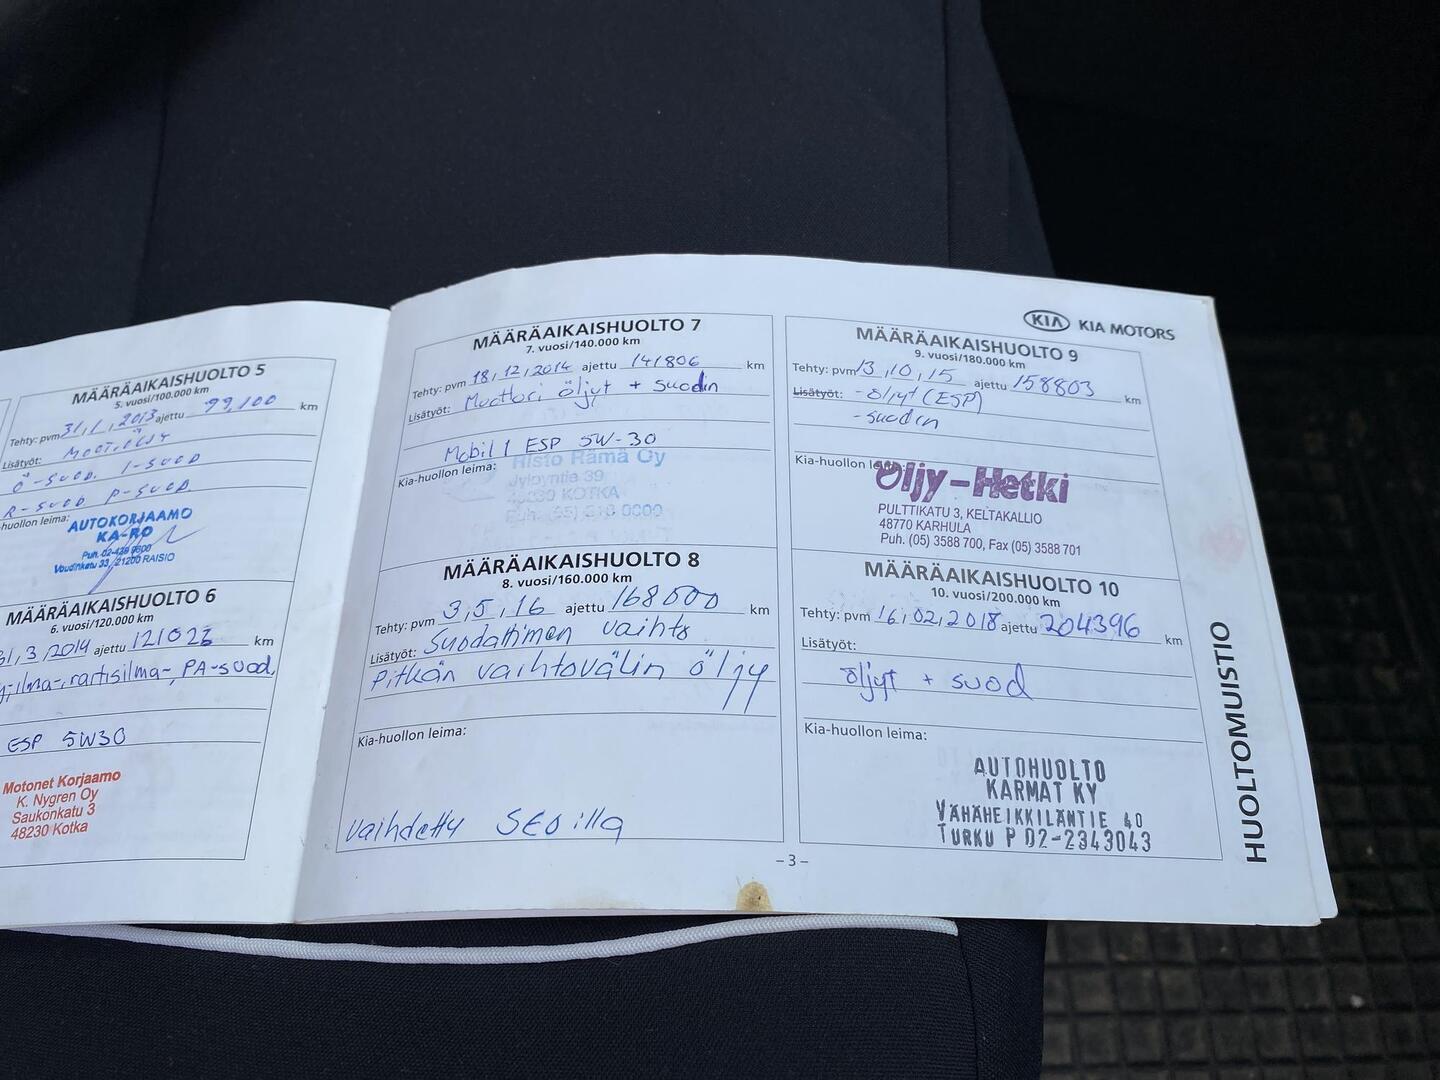 MÄÄRÄAIKAISHUOLTO 5
5. vuosi/100.000 km
Tehty: pvm 31,1,2013 ajettu 99,100 km
Lisätyöt:
Ö-SUOD. I-SUOD
R-SUOD P-SUOD.
-huollon leima:
AUTOKORJAAMO
KA-RO
Voudinkatu 33, 21200 RAISIO
MÄÄRÄAIKAISHUOLTO 6
6. vuosi/120.000 km
31,3,2014 ajettu km
-ilma-, raitisilma-, PA-suod,
ESP 5W30
Motonet Korjaamo
K. Nygren Oy
Saukonkatu 3
48230 Kotka
MÄÄRÄAIKAISHUOLTO 7
7. vuosi/140.000 km
Tehty: pvm 18,12,2014 ajettu 141806 km
Lisätyöt: Moottori öljyt + suodin
Mobil 1 ESP 5W-30
Kia-huollon leima:
Risto Rämä Oy
39
KOTKA
MÄÄRÄAIKAISHUOLTO 8
8. vuosi/160.000 km
Tehty: pvm 3,5,16 ajettu 168000 km
Lisätyöt: Suodattimen vaihto
Pitkän vaihtovälin öljy
Kia-huollon leima:
Vaihdettu SEOilla
KIA KIA MOTORS
MÄÄRÄAIKAISHUOLTO 9
9. vuosi/180.000 km
Tehty: pvm 13,10,15 ajettu 158803 km
Lisätyöt: -öljyt (ESP)
-suodin
Kia-huollon leima:
Öljy-Hetki
PULTTIKATU 3, KELTAKALLIO
48770 KARHULA
Puh. (05) 3588 700, Fax (05) 3588 701
MÄÄRÄAIKAISHUOLTO 10
10. vuosi/200.000 km
Tehty: pvm 16,02,2018 ajettu 204396 km
Lisätyöt:
öljyt + suod
Kia-huollon leima:
AUTOHUOLTO
KARMAT KY
VÄHÄHEIKKILÄNTIE 40
TURKU P 02-2343043
– 3 –
HUOLTOMUISTIO